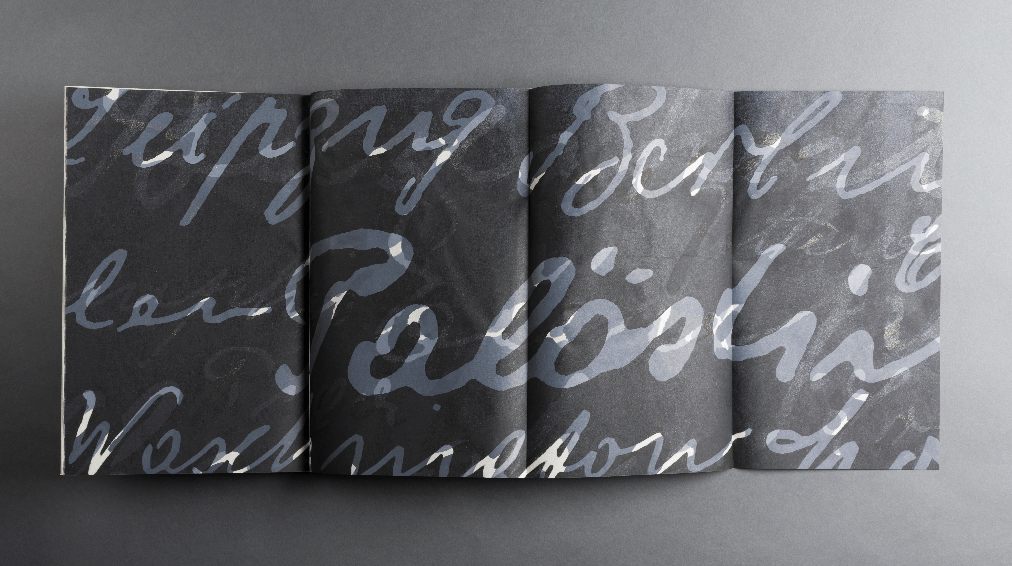 Leipzig Berlin
len Palästin
Washington